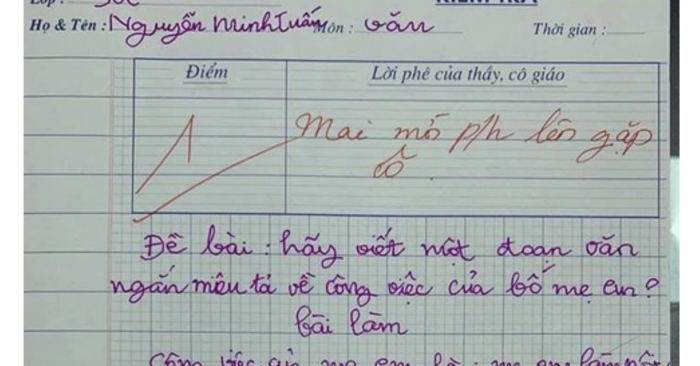 Họ & Tên : Nguyễn Minh Tuấn Môn : văn Thời gian :
Điểm
Lời phê của thầy, cô giáo
1
Mai mời p/h lên gặp
cô
Đề bài : hãy viết một đoạn văn
ngắn miêu tả về công việc của bố mẹ em?
bài làm